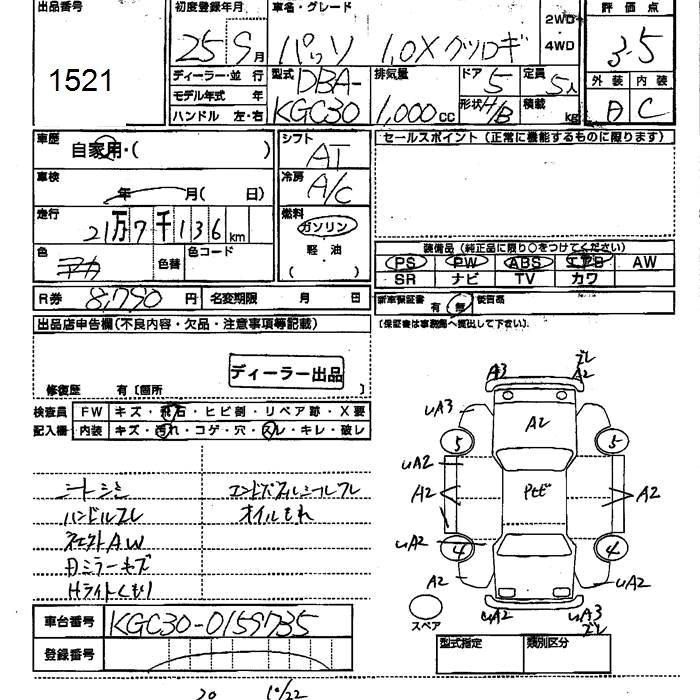 出品番号
1521
初度登録年月
25 9月
車名・グレード
パッソ 1.0X クツロギ
2WD
4WD
評価点
3.5
外装 内装
C
ディーラー・並 行
モデル年式 年
ハンドル 左・右
型式
DBA-
KGC30
排気量
1,000cc
ドア
5
定員
5人
形状 H/B
積載
kg
車歴
自家用・( )
シフト
AT
車検
年 月( 日)
冷房
A/C
走行
21万7千136km
燃料
ガソリン
軽・油
( )
色
アカ
色替
色コード
セールスポイント (正常に機能するものに限ります)
装備品 (純正品に限り○をつけてください)
PS PW ABS エアB AW
SR ナビ TV カワ
R券 8,790 円
名変期限 月 日
新車保証書
有 無
後日品
(保証書は事務局へ提出して下さい)
出品店申告欄(不良内容・欠品・注意事項等記載)
ディーラー出品
修復歴 有〔箇所
検査員
記入欄
FW キズ・飛石・ヒビ割・リペア跡・X要
内装 キズ・汚れ・コゲ・穴・スレ・キレ・破レ
シートシミ
ハンドルスレ
社外AW
ミラーキズ
Hライトくもり
オイルもれ
A3
A2
uA3
A2
5
5
uA2
A2
A2
uA2
4
4
A2
uA2
uA2
uA3
スペア
車台番号
KGC30-0159735
登録番号
型式指定
類別区分
20 10/22